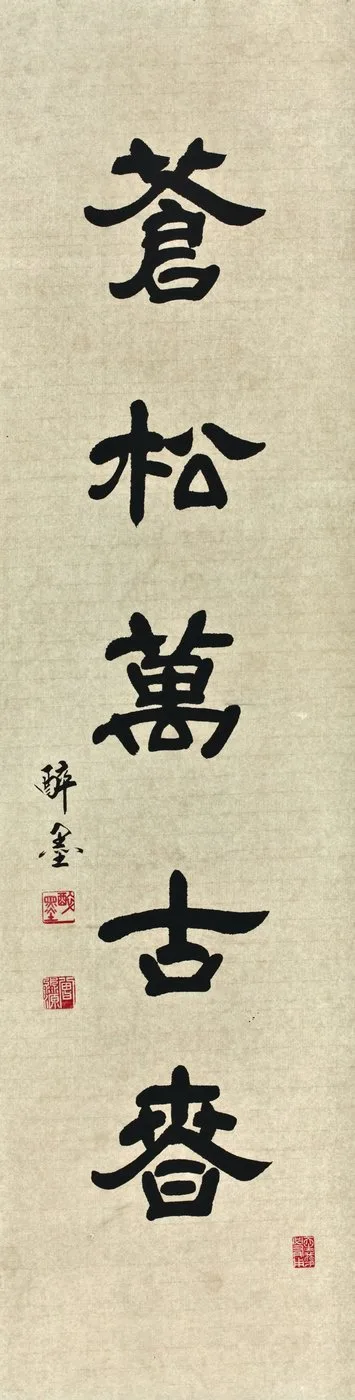 蒼松萬古春
醉墨